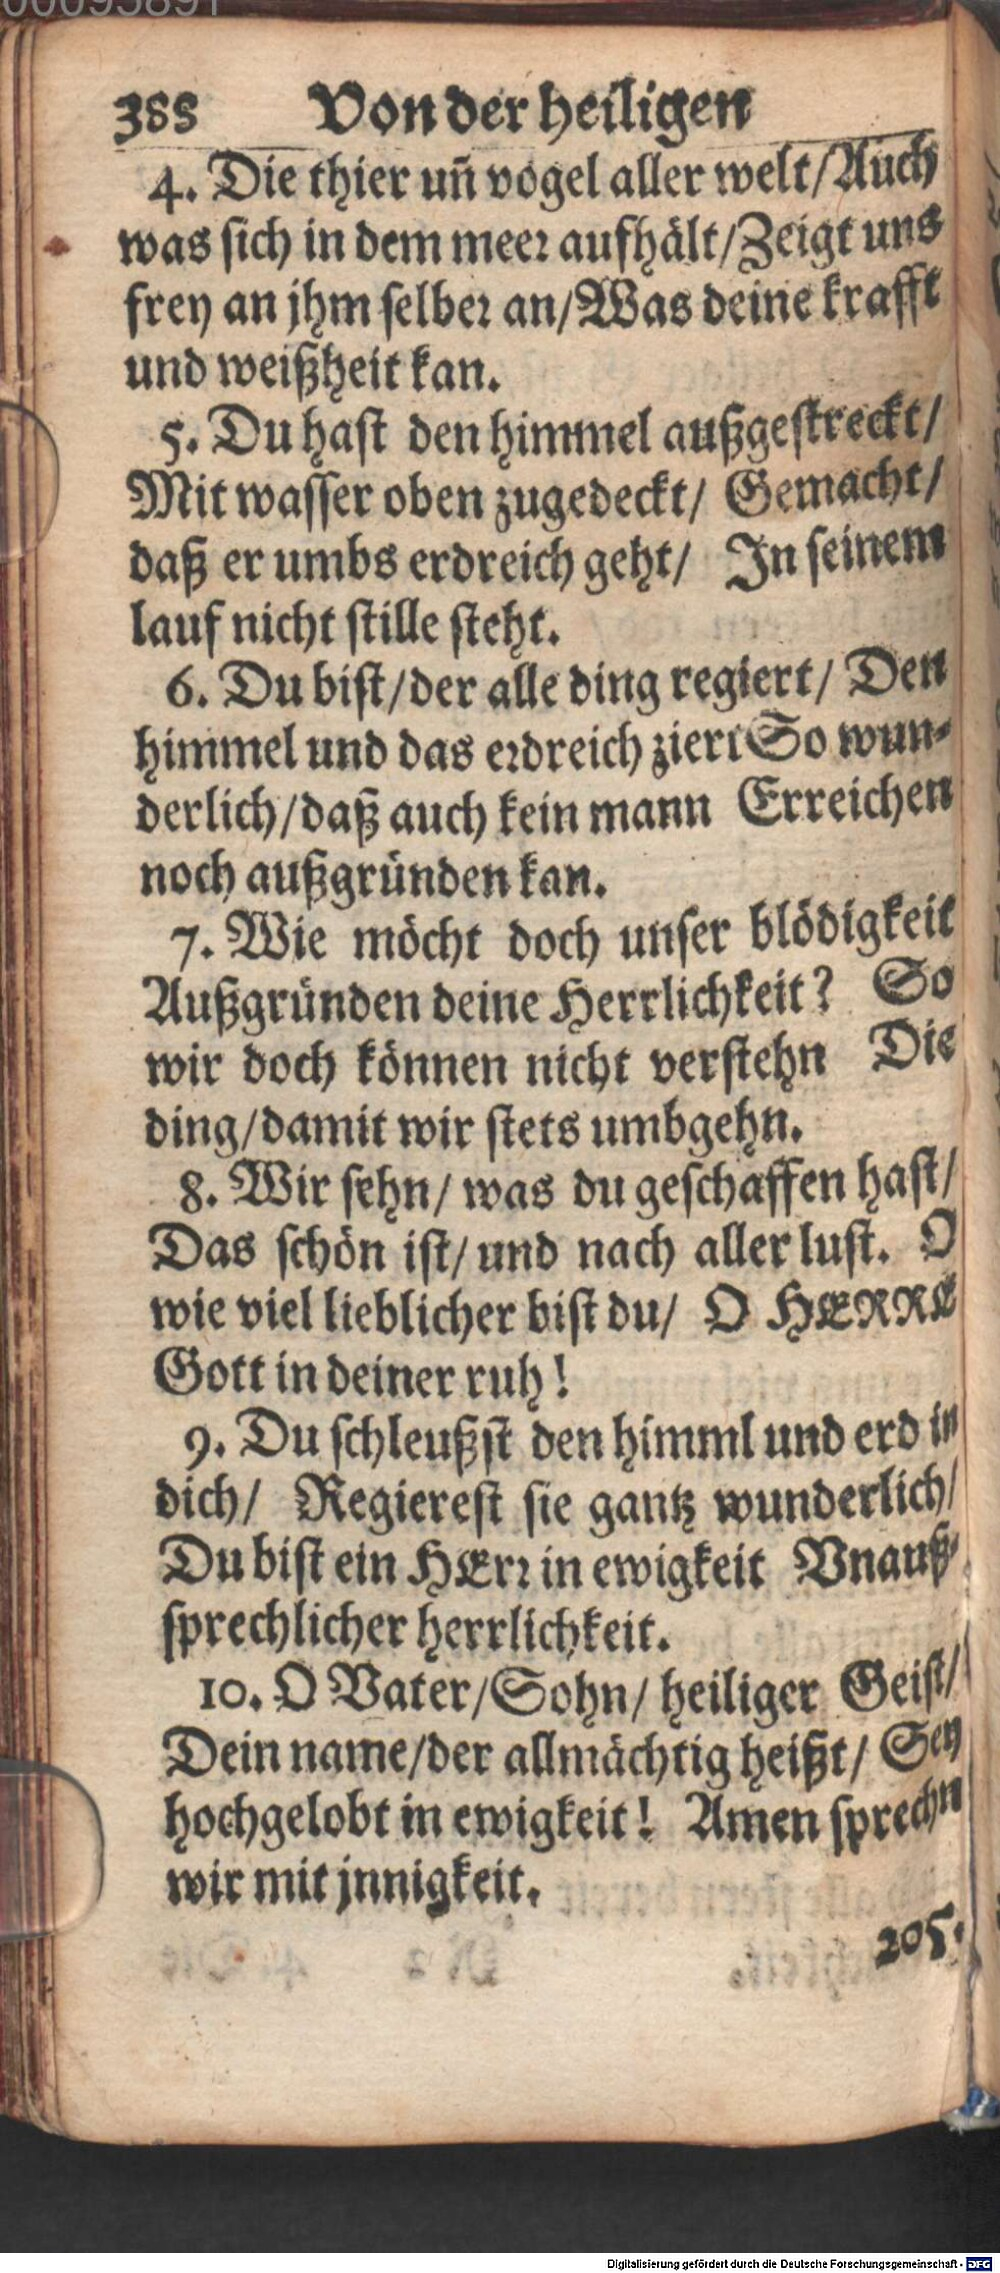 00095891
388 Von der heiligen
4. Die thier uñ vogel aller welt/Auch
was sich in dem meer aufhält/Zeigt uns
frey an jhm selber an/Was deine krafft
und weißheit kan.
5. Du hast den himmel außgestreckt/
Mit wasser oben zugedeckt/ Gemacht/
daß er umbs erdreich geht/ In seinem
lauf nicht stille steht.
6. Du bist/der alle ding regiert/ Den
himmel und das erdreich ziert So wun-
derlich/daß auch kein mann Erreichen
noch außgründen kan.
7. Wie möcht doch unser blödigkeit
Außgründen deine Herrlichkeit? So
wir doch können nicht verstehn Die
ding/damit wir stets umbgehn.
8. Wir sehn/ was du geschaffen hast/
Das schön ist/ und nach aller lust. O
wie viel lieblicher bist du/ O HERRE
Gott in deiner ruh!
9. Du schleußst den himml und erd in
dich/ Regierest sie gantz wunderlich/
Du bist ein HErr in ewigkeit Vnauß-
sprechlicher herrlichkeit.
10. O Vater/Sohn/ heiliger Geist/
Dein name/der allmächtig heißt/ Sey
hochgelobt in ewigkeit! Amen sprechn
wir mit jnnigkeit.
205.
Digitalisierung gefördert durch die Deutsche Forschungsgemeinschaft - DFG